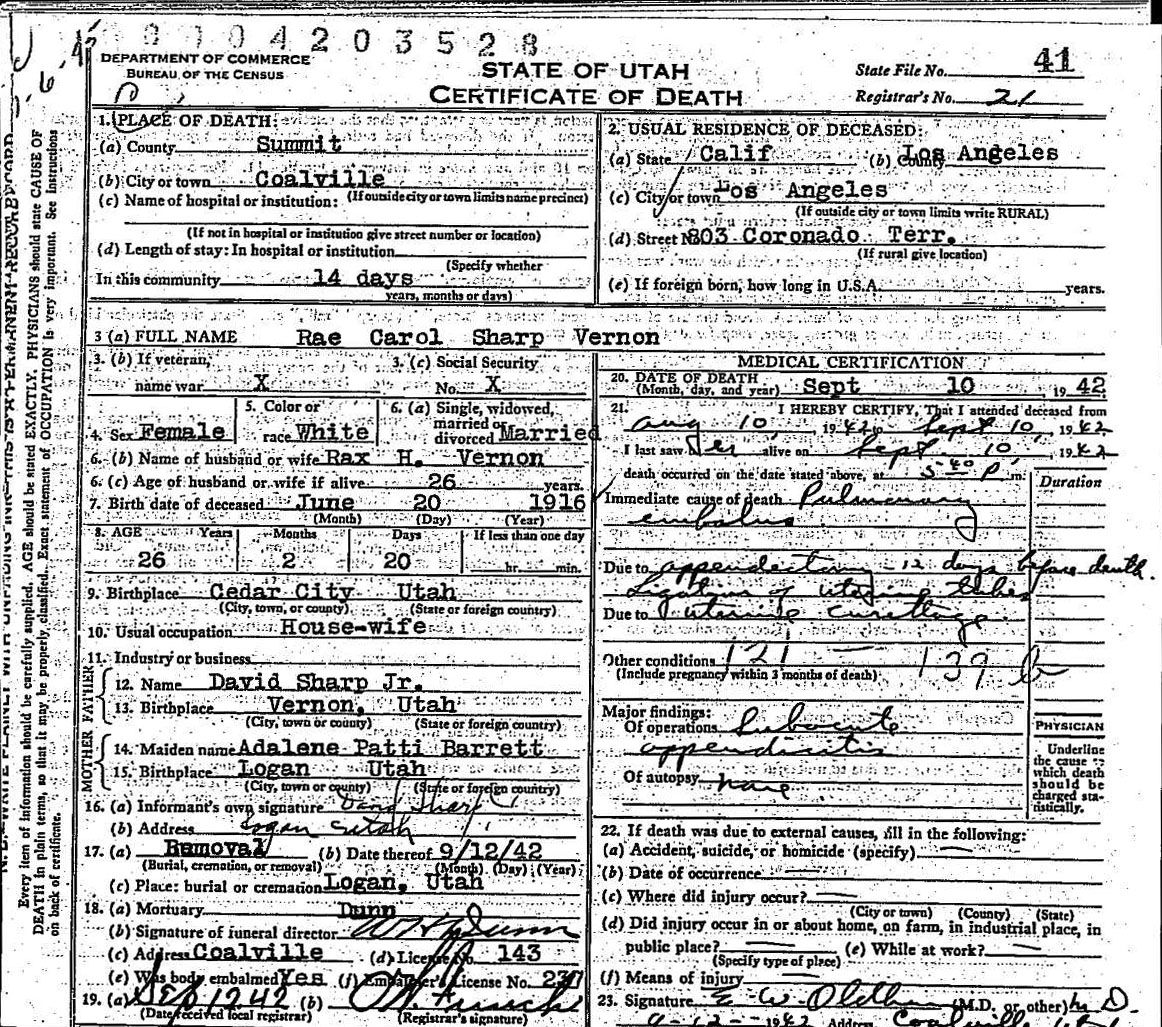 0704203528
DEPARTMENT OF COMMERCE
BUREAU OF THE CENSUS
STATE OF UTAH
CERTIFICATE OF DEATH
State File No. 41
Registrar's No. 21
1. PLACE OF DEATH:
(a) County Summit
(b) City or town Coalville
(If outside city or town limits name precinct)
(c) Name of hospital or institution:
(If not in hospital or institution give street number or location)
(d) Length of stay: In hospital or institution
(Specify whether
In this community 14 days
years, months or days)
2. USUAL RESIDENCE OF DECEASED:
(a) State Calif (b) County Los Angeles
(c) City or town Los Angeles
(If outside city or town limits write RURAL)
(d) Street No. 803 Coronado Terr.
(If rural give location)
(e) If foreign born, how long in U.S.A. years.
3 (a) FULL NAME Rae Carol Sharp Vernon
3. (b) If veteran, name war X
3. (c) Social Security No. X
4. Sex Female
5. Color or race White
6. (a) Single, widowed, married or divorced Married
6. (b) Name of husband or wife Rax H. Vernon
6. (c) Age of husband or wife if alive 26 years.
7. Birth date of deceased June 20 1916
(Month) (Day) (Year)
8. AGE Years Months Days If less than one day
26 2 20 hr. min.
9. Birthplace Cedar City Utah
(City, town, or county) (State or foreign country)
10. Usual occupation House-wife
11. Industry or business
FATHER
12. Name David Sharp Jr.
13. Birthplace Vernon, Utah
(City, town or county) (State or foreign country)
MOTHER
14. Maiden name Adalene Patti Barrett
15. Birthplace Logan Utah
(City, town or county) (State or foreign country)
16. (a) Informant's own signature David Sharp
(b) Address Logan Utah
17. (a) Removal (b) Date thereof 9/12/42
(Burial, cremation, or removal) (Month) (Day) (Year)
(c) Place: burial or cremation Logan, Utah
18. (a) Mortuary Dunn
(b) Signature of funeral director
(c) Address Coalville (d) License No. 143
(e) Was body embalmed Yes (f) Embalmer's License No. 237
19. (a) Sep 12 42 (b)
(Date received local registrar) (Registrar's signature)
MEDICAL CERTIFICATION
20. DATE OF DEATH
(Month, day, and year) Sept 10 1942
21. I HEREBY CERTIFY, That I attended deceased from
Aug 10, 1942 to Sept 10, 1942
I last saw her alive on Sept. 10, 1942
death occurred on the date stated above, at 5 40 P. m.
Duration
Immediate cause of death Pulmonary
embolus
Due to appendectomy - 12 days before death.
Ligation of uterine tubes
Due to Uterine curettage
Other conditions 121 - 139 b
(Include pregnancy within 3 months of death)
Major findings:
Of operations Subacute
appendicitis
Of autopsy none
PHYSICIAN
Underline
the cause to
which death
should be
charged sta-
tistically.
22. If death was due to external causes, fill in the following:
(a) Accident, suicide, or homicide (specify)
(b) Date of occurrence
(c) Where did injury occur?
(City or town) (County) (State)
(d) Did injury occur in or about home, on farm, in industrial place, in
public place? (e) While at work?
(Specify type of place)
(f) Means of injury
23. Signature E. W. Oldham (M.D. or other) M D.
9-12-1942 Address
Every item of information should be carefully supplied. AGE should be stated EXACTLY. PHYSICIANS should state CAUSE OF
DEATH in plain terms, so that it may be properly classified. Exact statement of OCCUPATION is very important. See instructions
on back of certificate.